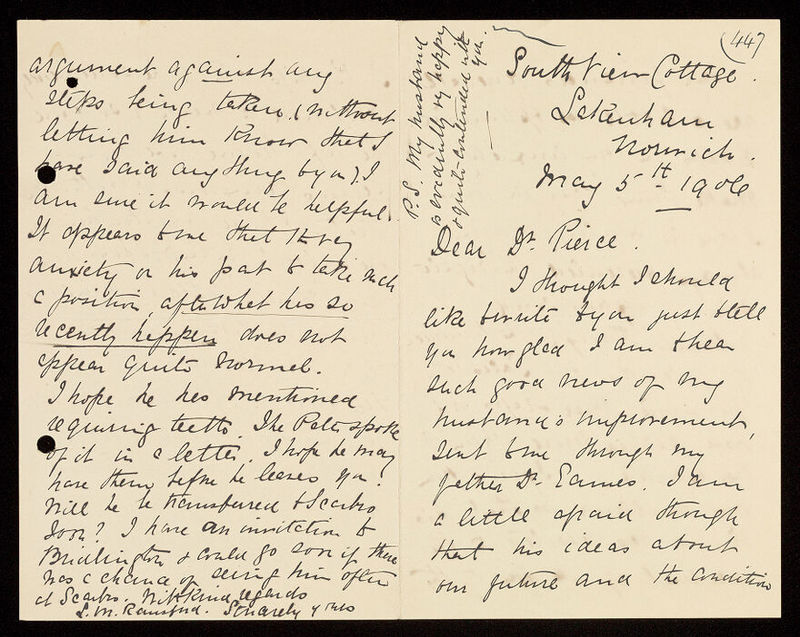 (447
South View Cottage.
Lakenham
Norwich.
May 5th 1906
Dear Dr. Pierce.
I thought I should
like to write to you just to tell
you how glad I am to hear
such good news of my
husband's improvement,
sent to me through my
father Dr. Eames. I am
a little afraid though
that his ideas about
our future and the condition
argument against any
steps being taken (without
letting him know that I
have said anything to you). I
am sure it would be helpful.
It appears to me that the very
anxiety on his part to take such
a position, after what has so
recently happen does not
appear quite normal.
I hope he has mentioned
requiring teeth. The Pater spoke
of it in a letter. I hope he may
have them before he leaves you.
Will he be transferred to Scarbro
soon? I have an invitation to
Bridlington & could go soon if there
was a chance of seeing him often
at Scarbro. With kind regards
Sincerely yours
L. M. Ransford.
P.S. My husband
is evidently very happy
& quite contented with
you.